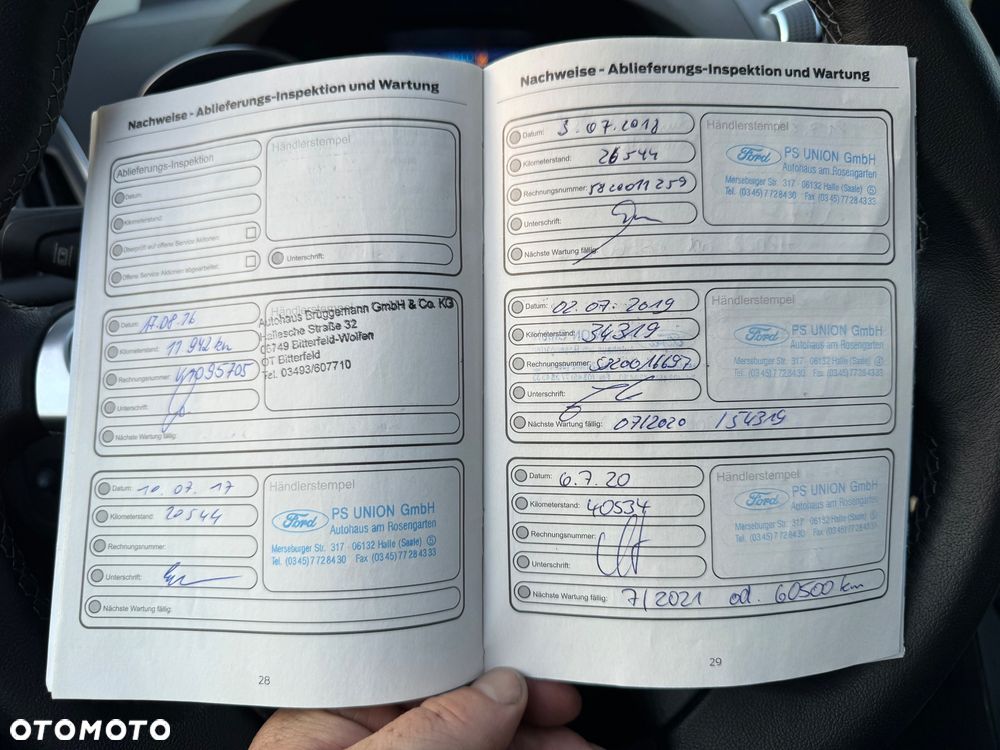 Nachweise - Ablieferungs-Inspektion und Wartung
Ablieferungs-Inspektion
Datum:
Kilometerstand:
Überprüft auf offene Service Aktionen:
Offene Service Aktionen abgearbeitet:
Händlerstempel
Unterschrift:
Datum: 17.08.16
Kilometerstand: 11 942 km
Rechnungsnummer:
Unterschrift:
Nächste Wartung fällig:
Händlerstempel
Autohaus Brüggemann GmbH & Co. KG
Hallesche Straße 32
06749 Bitterfeld-Wolfen
OT Bitterfeld
Tel. 03493/607710
Datum: 10. 07. 17
Kilometerstand: 20544
Rechnungsnummer:
Unterschrift:
Nächste Wartung fällig:
Händlerstempel
Ford PS UNION GmbH
Autohaus am Rosengarten
Merseburger Str. 317 · 06132 Halle (Saale) S
Tel. (0345) 7 72 84 30 Fax (0345) 7 72 84 33 33
28
Nachweise - Ablieferungs-Inspektion und Wartung
Datum: 3. 07. 2018
Kilometerstand: 26544
Rechnungsnummer: 5820011259
Unterschrift:
Nächste Wartung fällig:
Händlerstempel
Ford PS UNION GmbH
Autohaus am Rosengarten
Merseburger Str. 317 · 06132 Halle (Saale) S
Tel. (0345) 7 72 84 30 Fax (0345) 7 72 84 33 33
Datum: 02. 07. 2019
Kilometerstand: 34319
Rechnungsnummer: 5820016697
Unterschrift:
Nächste Wartung fällig: 07/2020 / 54319
Händlerstempel
Ford PS UNION GmbH
Autohaus am Rosengarten
Merseburger Str. 317 · 06132 Halle (Saale) S
Tel. (0345) 7 72 84 30 Fax (0345) 7 72 84 33 33
Datum: 6.7.20
Kilometerstand: 40534
Rechnungsnummer:
Unterschrift:
Nächste Wartung fällig: 7/2021 od. 60500 km
Händlerstempel
Ford PS UNION GmbH
Autohaus am Rosengarten
Merseburger Str. 317 · 06132 Halle (Saale) S
Tel. (0345) 7 72 84 30 Fax (0345) 7 72 84 33 33
29
OTOMOTO